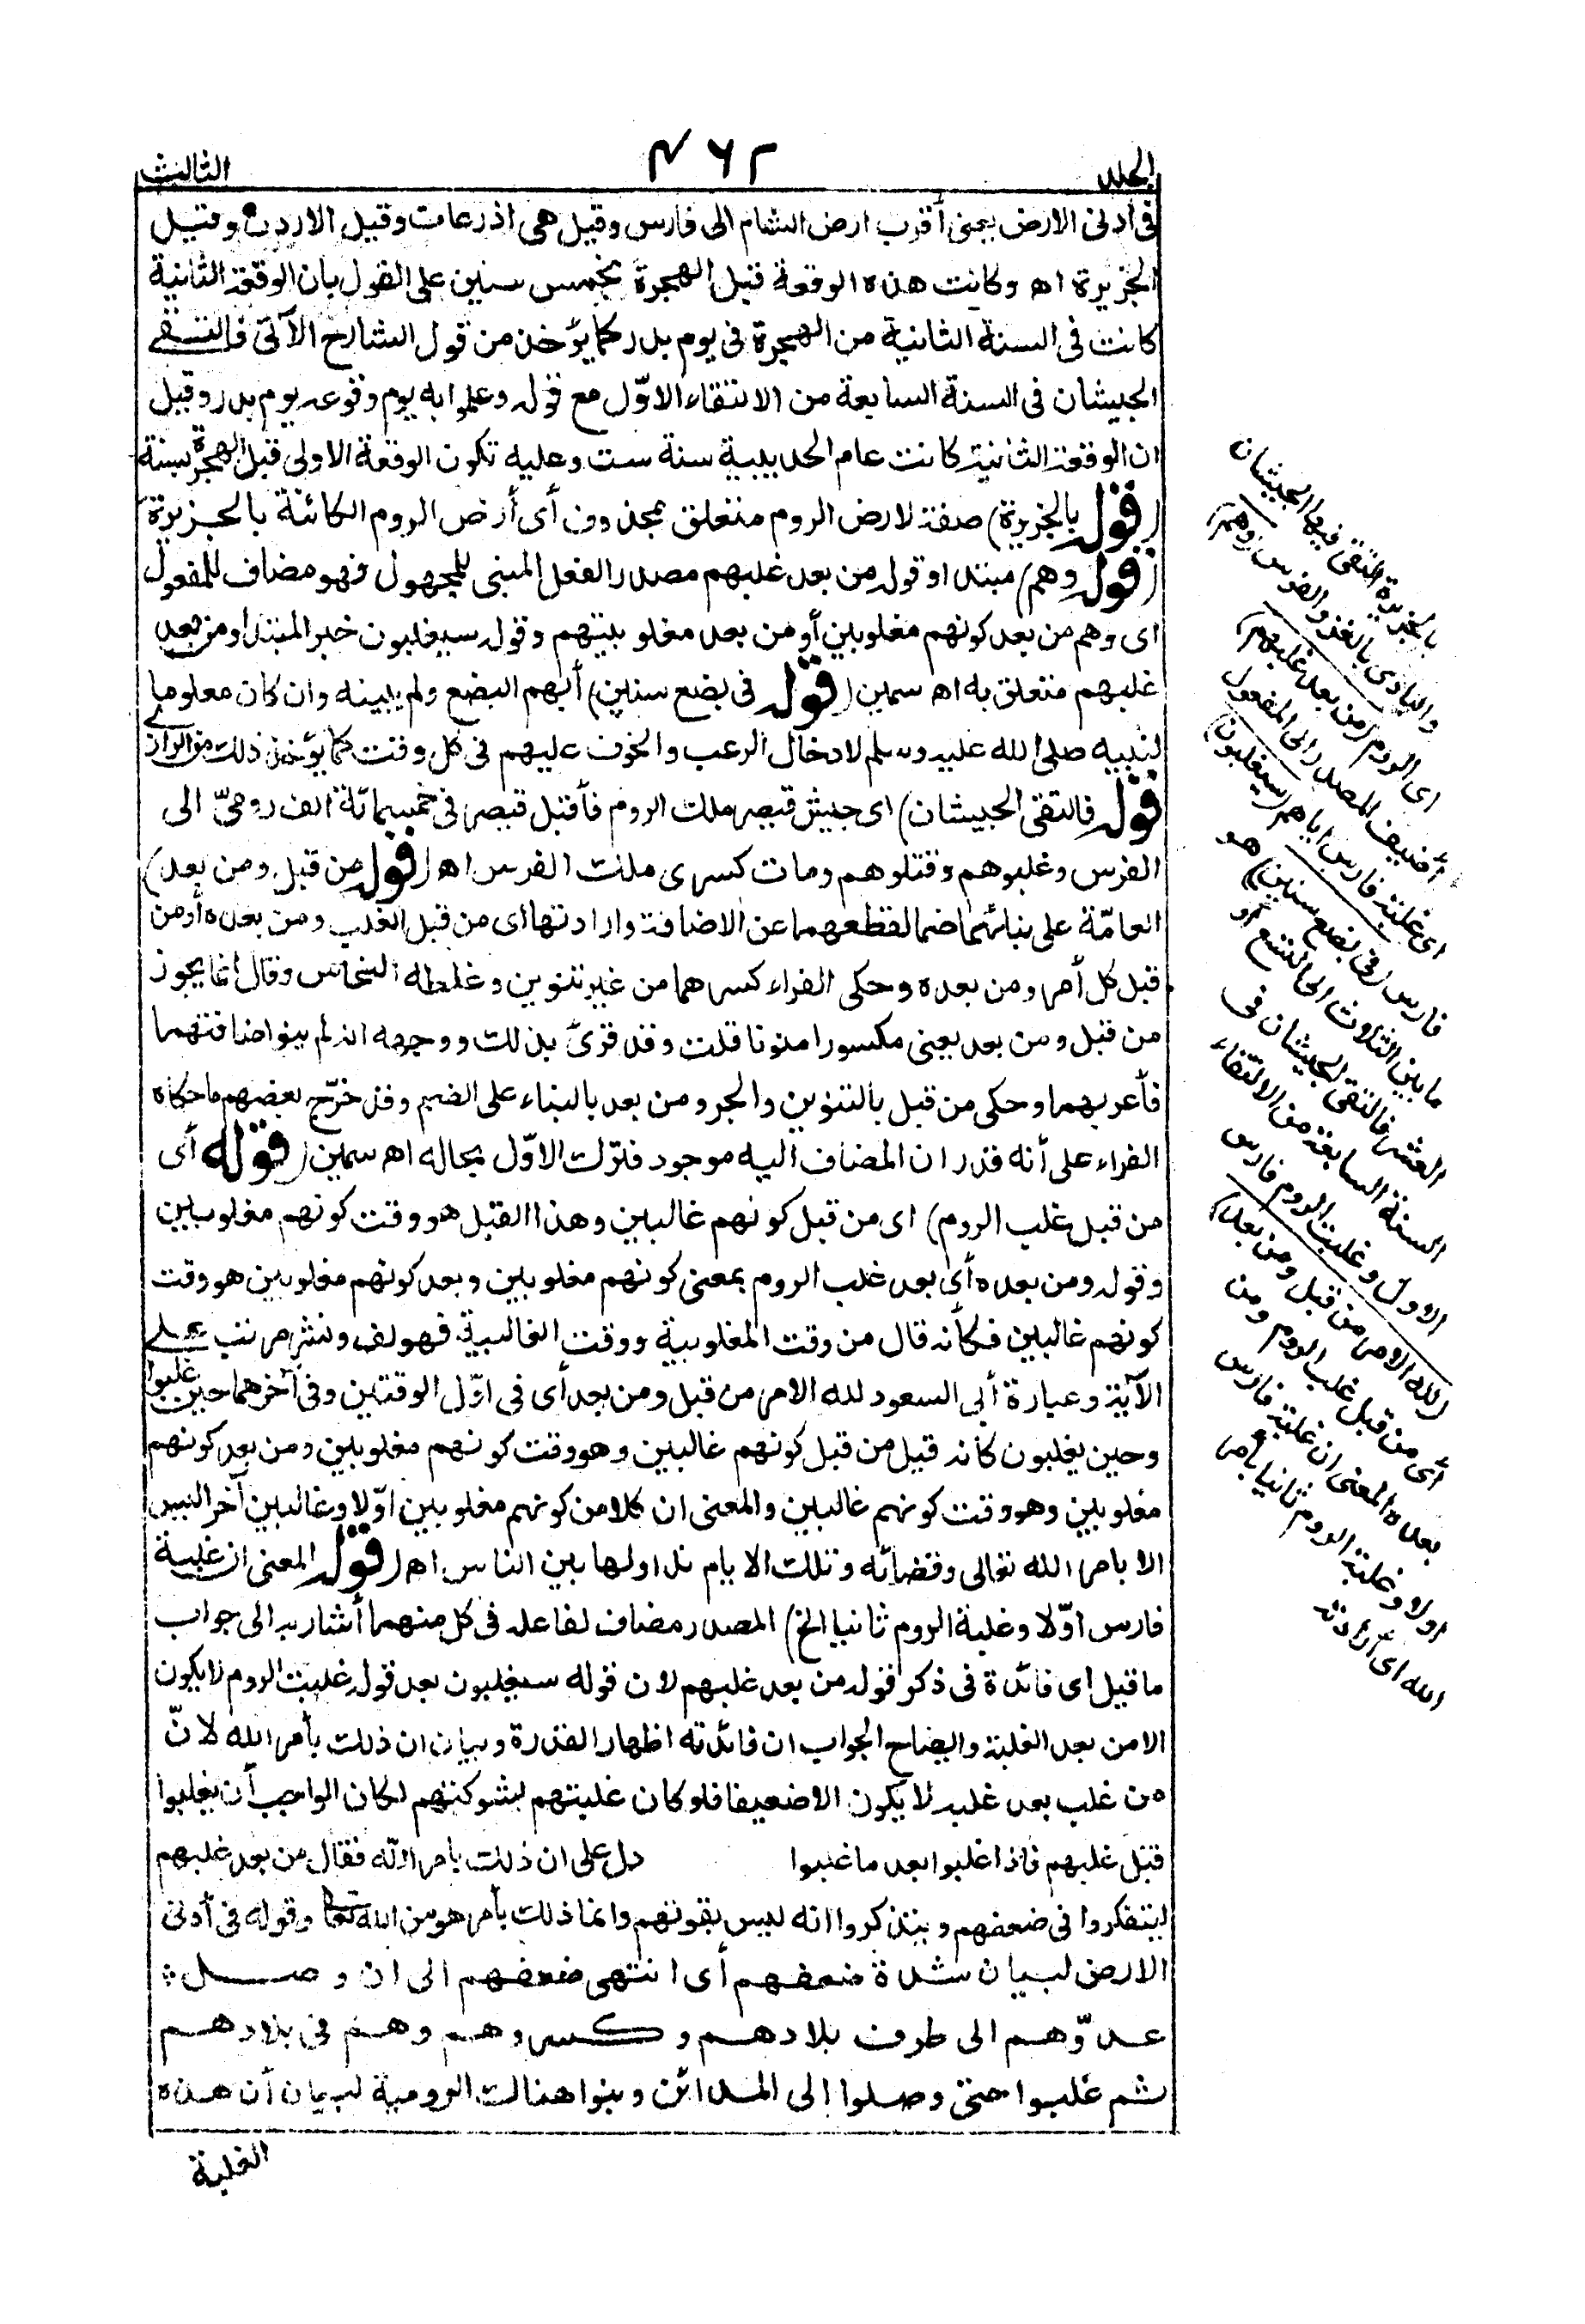 الجلد
٤٦٢
الثالث
فى أدنى الارض بمعنى أقرب ارض الشام الى فارس وقيل هى اذرعات وقيل الاردن وقيل
الجزيرة اه وكانت هذه الوقعة قبل الهجرة بخمس سنين على القول بان الوقعة الثانية
كانت فى السنة الثانية من الهجرة فى يوم بدر كما يؤخذ من قول الشارح الآتى فالتقى
الجيشان فى السنة السابعة من الالتقاء الاوّل مع قوله وعلموا به يوم وقوعه يوم بدر وقيل
ان الوقعة الثانية كانت عام الحديبية سنة ست وعليه تكون الوقعة الاولى قبل الهجرة بسنة
(قوله بالجزيرة) صفة لارض الروم متعلق بمحذوف أى أرض الروم الكائنة بالجزيرة
(قوله وهم) مبتدا وقوله من بعد غلبهم مصدر الفعل المبنى للمجهول فهو مضاف للمفعول
اى وهم من بعد كونهم مغلوبين أو من بعد مغلوبيتهم وقوله سيغلبون خبر المبتدا ومن بعد
غلبهم متعلق به اه سمين (قوله فى بضع سنين) أبهم البضع ولم يبينه وان كان معلوما
لنبيه صلى الله عليه وسلم لادخال الرعب والخوف عليهم فى كل وقت كما يؤخذ ذلك من الرازى
قوله فالتقى الجيشان) اى جيش قيصر ملك الروم فأقبل قيصر فى خمسمائة الف رومىّ الى
الفرس وغلبوهم وقتلوهم ومات كسرى ملك الفرس اه (قوله من قبل ومن بعد)
العامّة على بنائهما ضما لقطعهما عن الاضافة وارادتها اى من قبل الغلب ومن بعده أو من
قبل كل أمر ومن بعده وحكى الفراء كسرهما من غير تنوين وغلطه النحاس وقال انما يجوز
من قبل ومن بعد يعنى مكسورا منونا قلت وقد قرئ بذلك ووجهه انه لم ينو اضافتهما
فأعربهما وحكى من قبل بالتنوين والجر ومن بعد بالبناء على الضم وقد خرّج بعضهم ما حكاه
الفراء على أنه قدر ان المضاف اليه موجود فترك الاوّل بحاله اه سمين (قوله أى
من قبل غلب الروم) اى من قبل كونهم غالبين وهذا القبل هو وقت كونهم مغلوبين
وقوله ومن بعده أى بعد غلب الروم بمعنى كونهم مغلوبين وبعد كونهم مغلوبين هو وقت
كونهم غالبين فكأنه قال من وقت المغلوبية ووقت الغالبية فهو لف ونشر مرتب على
الآية وعبارة أبى السعود لله الامر من قبل ومن بعد أى فى اوّل الوقتين وفى آخرهما حين غلبوا
وحين يغلبون كانه قيل من قبل كونهم غالبين وهو وقت كونهم مغلوبين ومن بعد كونهم
مغلوبين وهو وقت كونهم غالبين والمعنى ان كلا من كونهم مغلوبين اوّلا وغالبين آخرا ليس
الا بامر الله تعالى وقضائه وتلك الايام نداولها بين الناس اه (قوله المعنى ان غلبة
فارس اوّلا وغلبة الروم ثانيا الخ) المصدر مضاف لفاعله فى كل منهما أشار به الى جواب
ما قيل اى فائدة فى ذكر قوله من بعد غلبهم لان قوله سيغلبون بعد قوله غلبت الروم لا يكون
الا من بعد الغلبة وايضاح الجواب ان فائدته اظهار القدرة وبيان ان ذلك بأمر الله لانّ
من غلب بعد غلبه لا يكون الا ضعيفا فلو كان غلبتهم لشوكتهم لكان الواجب أن يغلبوا
قبل غلبهم فاذا غلبوا بعد ما غلبوا دل على ان ذلك بامر الله فقال من بعد غلبهم
ليتفكروا فى ضعفهم ويتذكروا انه ليس بقوتهم وانما ذلك بأمر هو من الله تعالى وقوله فى أدنى
الارض لبيان شدة ضعفهم أى انتهى ضعفهم الى ان وصل
عدوّهم الى طرف بلادهم وكسروهم وهم فى بلادهم
ثم غلبوا حتى وصلوا إلى المدائن وبنوا هنالك الرومية لبيان أن هذه
الغلبة
بالجزيرة التقى فيها الجيشان
والبادى بالغزو الفرس (وهم)
اى الروم (من بعد غلبهم)
أضيف المصدر الى المفعول
اى غلبة فارس اياهم (سيغلبون)
فارس (فى بضع سنين) هو
ما بين الثلاث الى التسع أو
العشر فالتقى الجيشان فى
السنة السابعة من الالتقاء
الاول وغلبت الروم فارس
(لله الامر من قبل ومن بعد)
أى من قبل غلب الروم ومن
بعده المعنى ان غلبة فارس
اولا وغلبة الروم ثانيا بأمر
الله اى أرادته